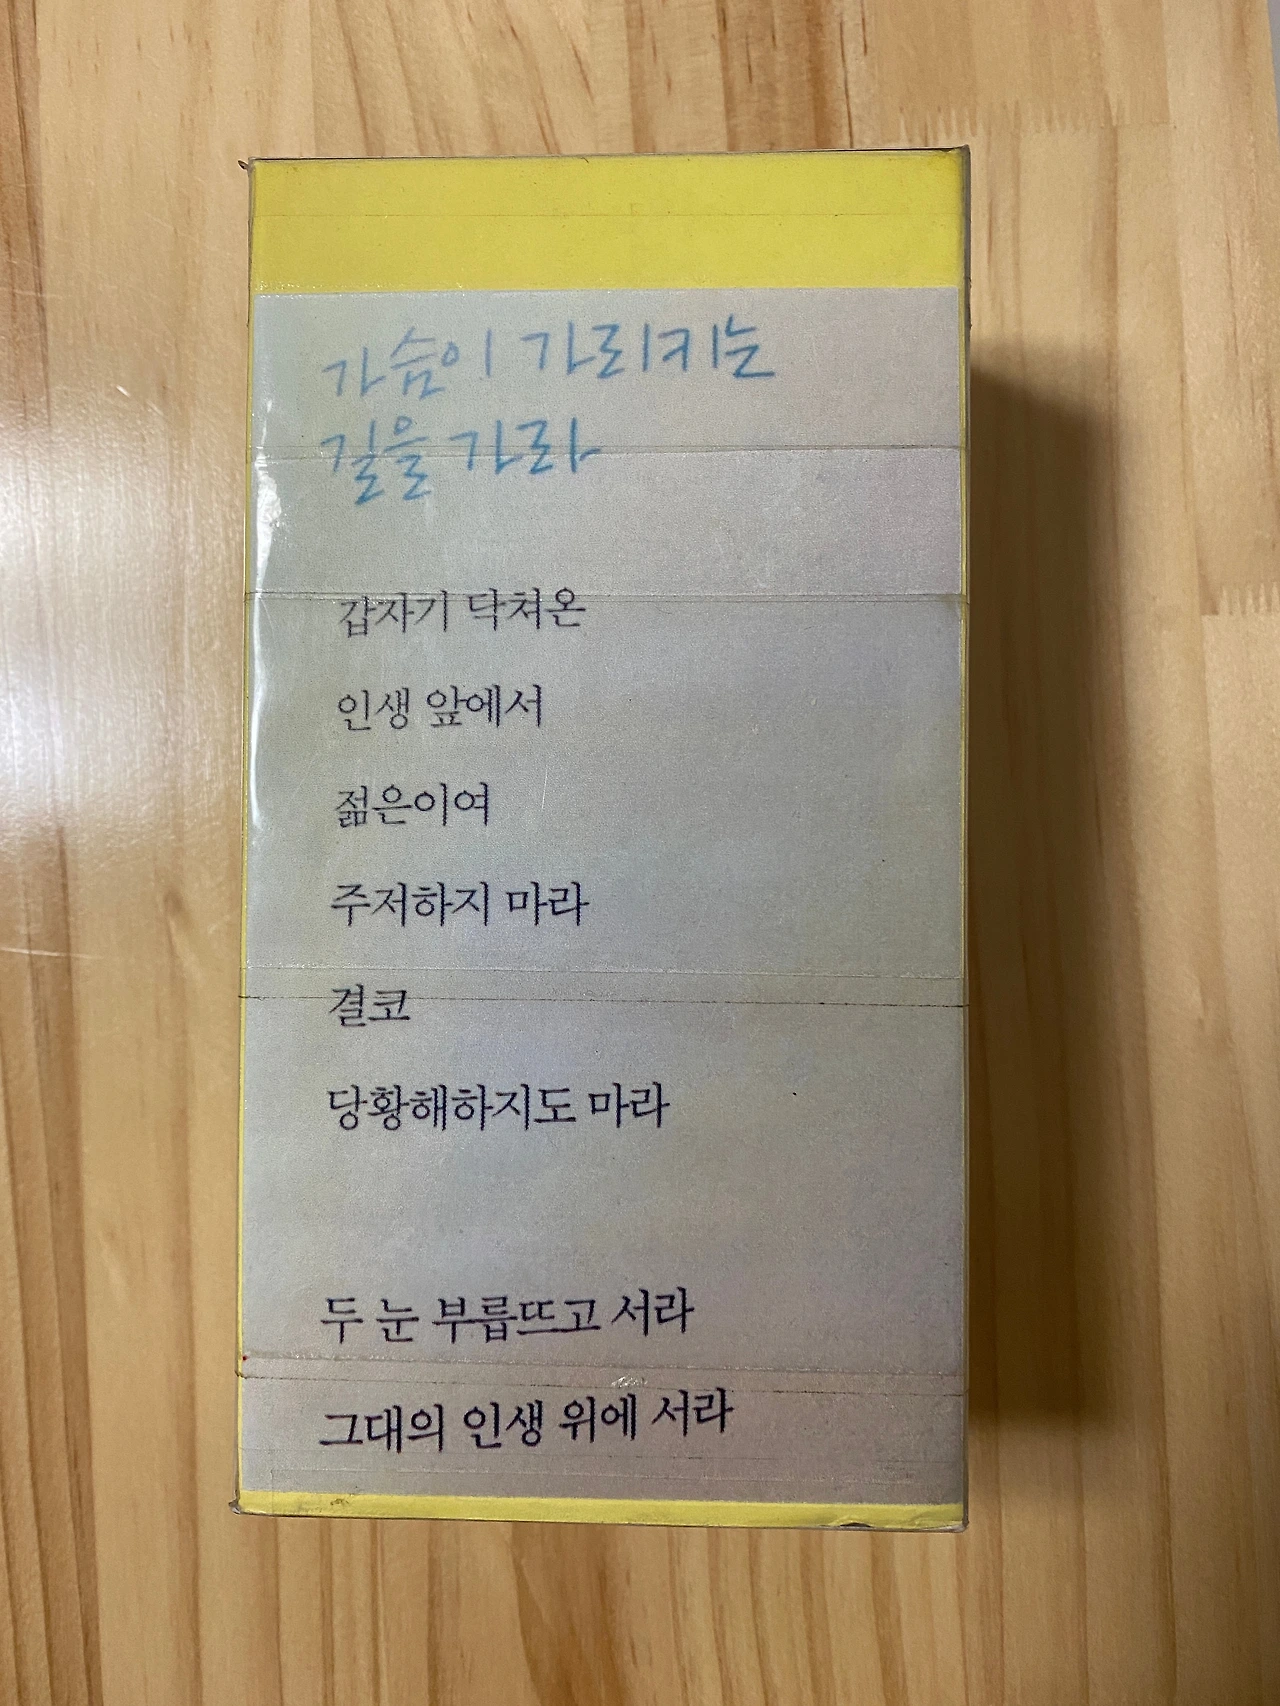 가슴이 가리키는
길을 가라
갑자기 닥쳐온
인생 앞에서
젊은이여
주저하지 마라
결코
당황해하지도 마라
두 눈 부릅뜨고 서라
그대의 인생 위에 서라